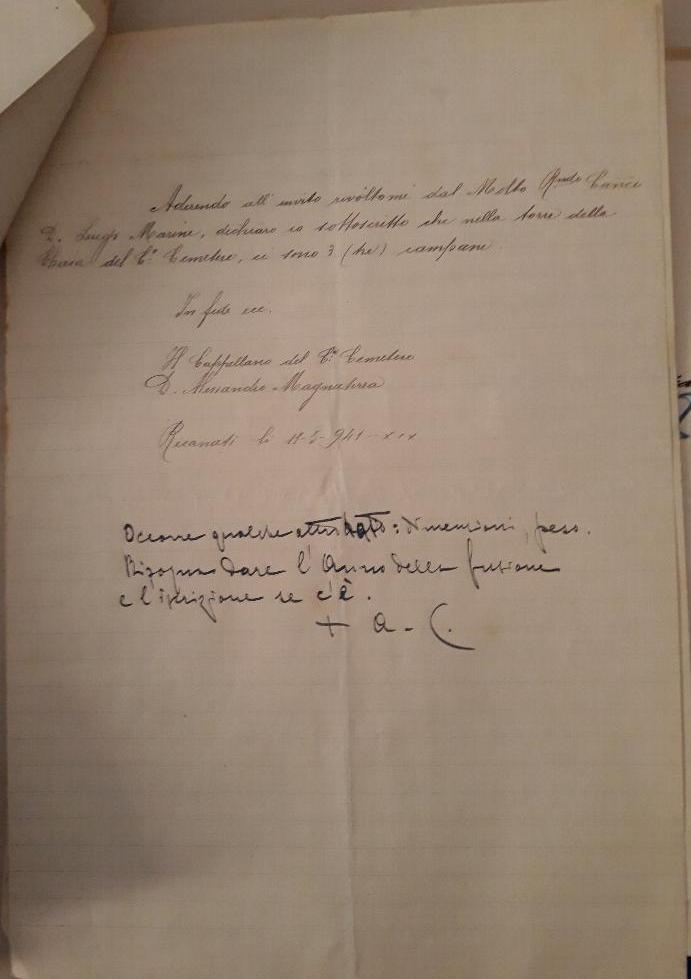 Aderendo all'invito rivoltomi dal Molto Rndo Canco
D. Luigi Marini, dichiaro io sottoscritto che nella torre della
Chiesa del Co Cemetero, ci sono 3 (tre) campane.
In fede ecc.
Il Cappellano del Co Cemetero
D. Alessandro Magnaterra
Recanati li 11-5-941-XIX
Occorre qualche attributo: dimensioni, peso.
Bisogna dare l'Anno della fusione
e l'iscrizione se c'è.
+ a. C.